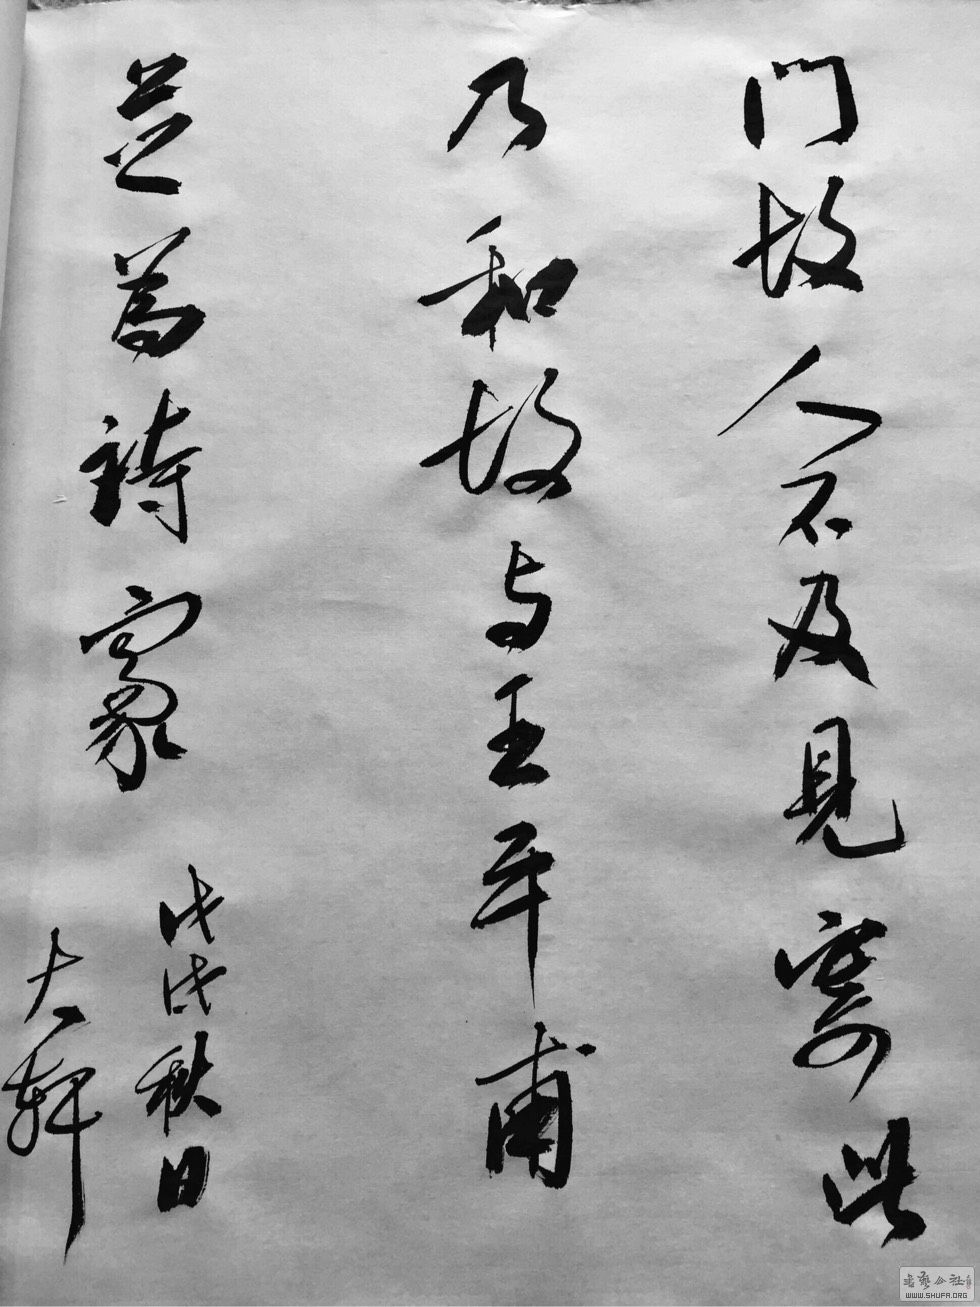 門故人不及見寄此
乃和故与王平甫
並為詩家
戊戌秋日
大軒
书艺公社
WWW.SHUFA.ORG